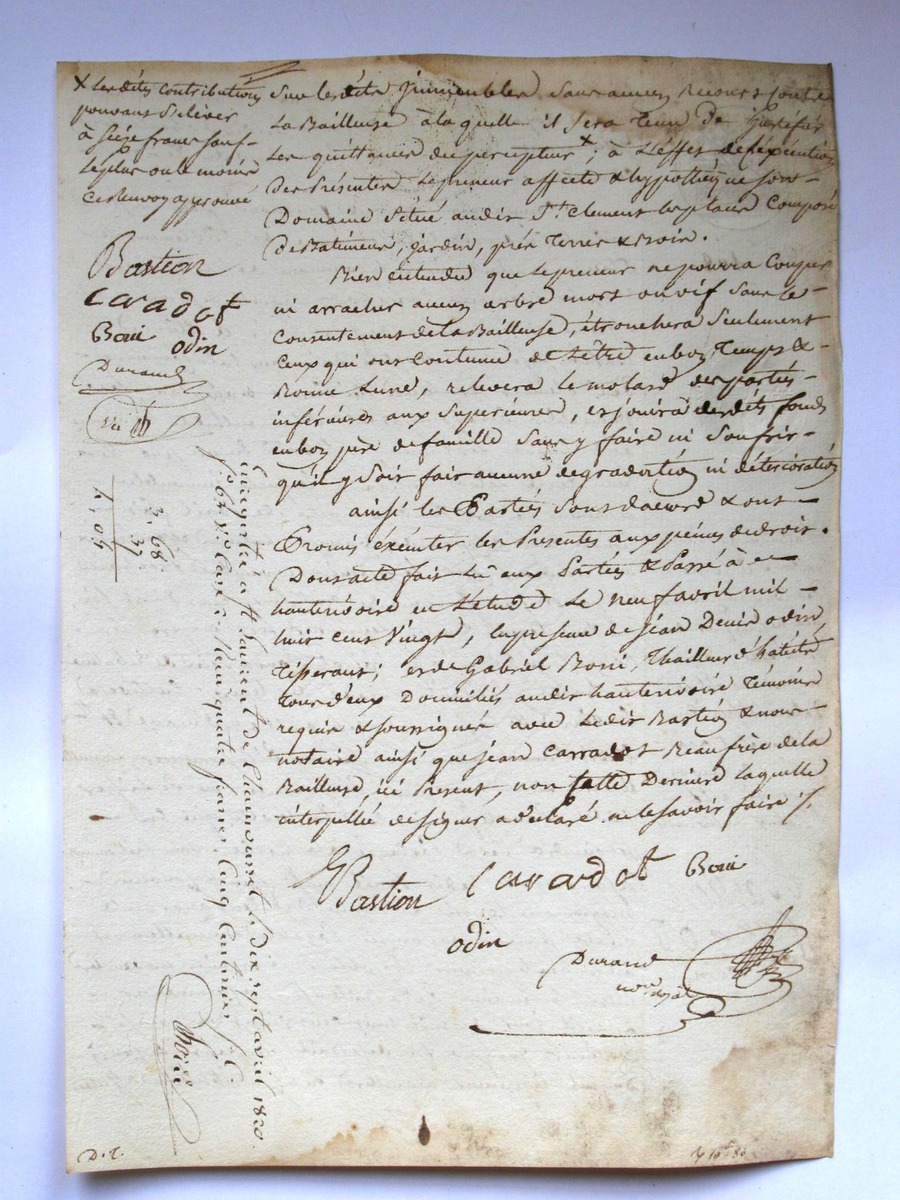 x Lesdites contributions
pouvant s'elever
à seize francs sauf
le plus ou le moins
ce Renvoy approuvé
Bastion
Caradot
Boni odin
Durand
sur lesdits jmmeubles sans aucun Recours contre
La Bailleuse à la quelle il sera tenu de
Les quittances du percepteur x; à L'effet de L'exécution
Des Présentes Le preneur affecte & hypothèque son
Domaine situé audit St. Clement les places Composé
De Batiments, jardin, prés Terres & Bois.
Bien entendu que Le preneur ne pourra Couper
ni arracher aucun arbre mort ou vif sans le
Consentement de La Bailleuse, étronchera seulement
Ceux qui ont Coutume de L'être en bon Temps &
Bonne Lune, relevera le molard des parties
inférieures aux superieures, et jouira desdits fonds
en bon père de famille sans y faire ni soufrir
qu'il y soit fait aucune dégradation ni déterioration
ainsi les Parties sont d'accord & ont
Promis éxécuter les Presentes aux peines de droit.
Dont acte fait Lû aux Parties & Passé à
hauterivoire en L'etude Le neuf avril mil
huit cent Vingt, en presence de jean Denis odin,
Tisserant; et de Gabriel Boni, Thailleur d'habits
tous deux Domiciliés audit hauterivoire Témoins
requis & soussignés avec Ledit Bastion & nous
notaire ainsi que jean Carradot Beau frère de la
Bailleuse, ici Present, non cette Derniere laquelle
interpellée de signer a declaré ne le savoir faire ./.
Bastion Caradot Boni
odin
Durand
nore royal
Enregistré à St Laurent de Chamousset le dix sept avril 1820
fo 64 Vo Case 2 Reçu quatre francs cinq centimes
3,68
37
4,05
D.T.